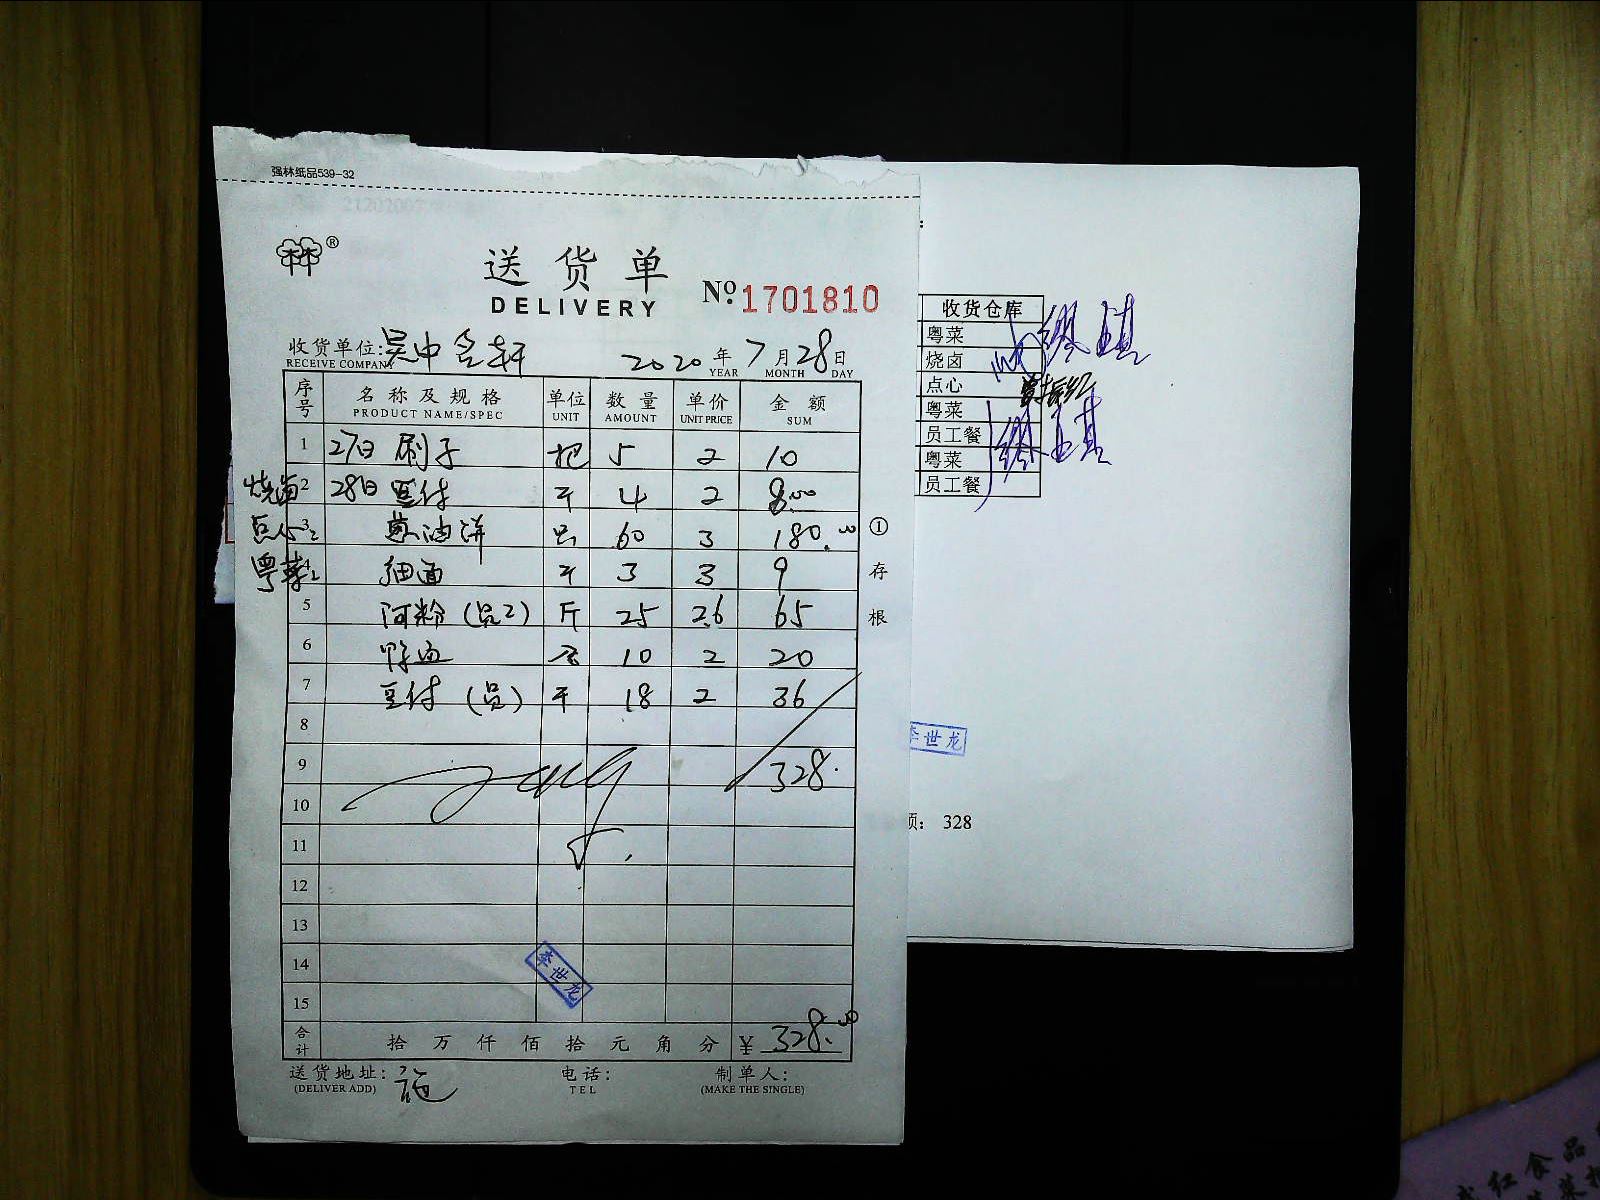 强林纸品539-32
林 ®
送货单
DELIVERY
No. 1701810
收货单位: 吴中食轩 2020 年 7 月 28 日
RECEIVE COMPANY YEAR MONTH DAY
序号 名称及规格 单位 数量 单价 金额
PRODUCT NAME/SPEC UNIT AMOUNT UNIT PRICE SUM
1 27日 刷子 把 5 2 10
烧卤 2 28日 豆付 斤 4 2 8.00
点心 3 葱油饼 只 60 3 180.00
粤菜 4 细面 斤 3 3 9
5 河粉 (员2) 斤 25 2.6 65
6 鸭血 盒 10 2 20
7 豆付 (员) 斤 18 2 36
8
9 328.
10
11
12
13
14
李世龙
15
合计 拾 万 仟 佰 拾 元 角 分 ¥ 328.00
送货地址: 电话: 制单人:
(DELIVER ADD) TEL (MAKE THE SINGLE)
① 存根
收货仓库
粤菜
烧卤
点心
粤菜
员工餐
粤菜
员工餐
李世龙
: 328
红食品